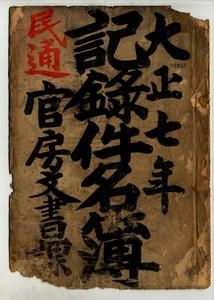 大正七年
記錄件名簿
官房文書課
民通